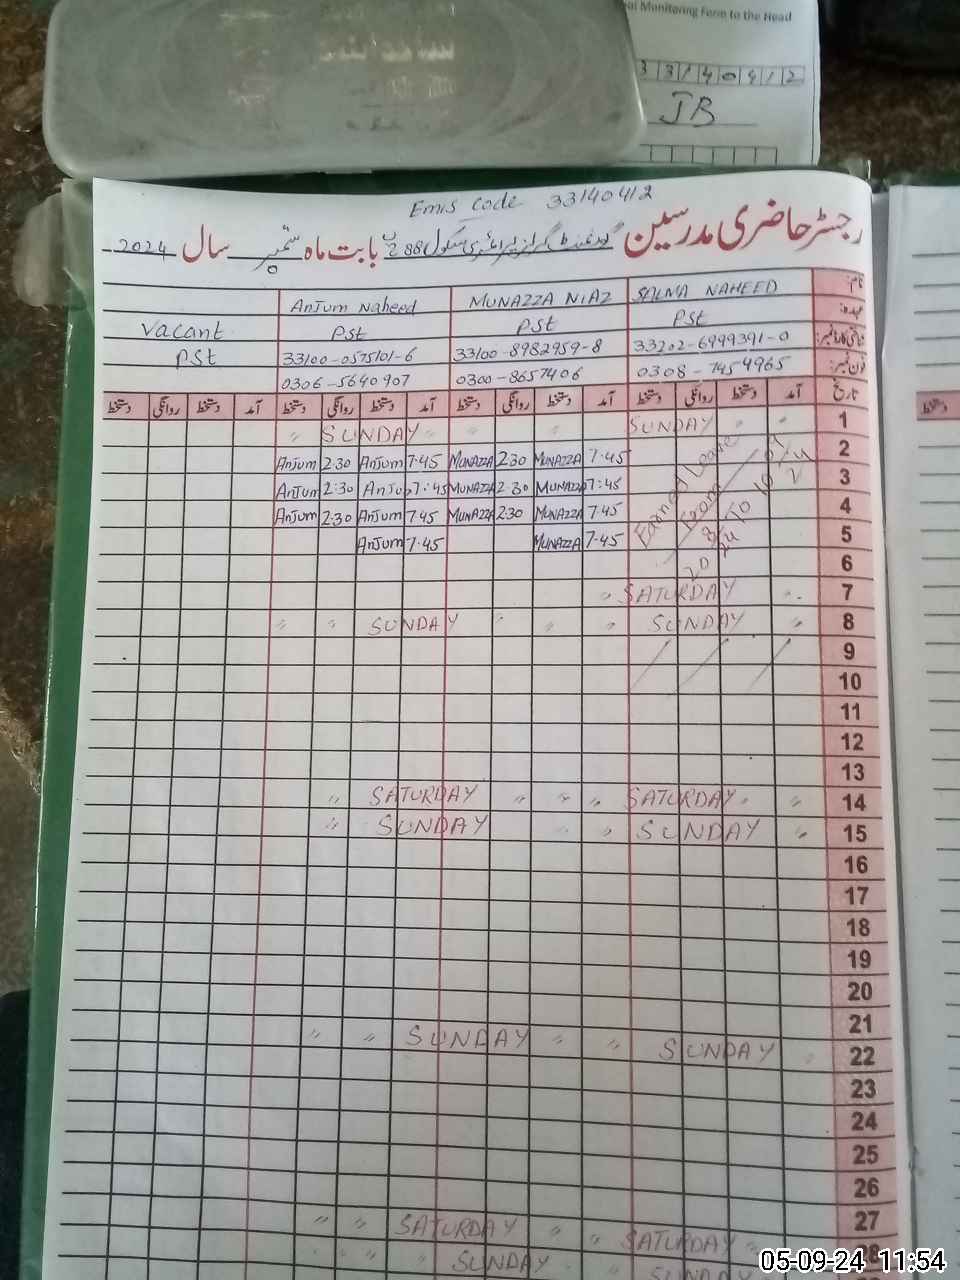 Monitoring Form to the Head
3 3 1 4 0 4 1 2
JB
Emis Code 33140412
رجسٹر حاضری مدرسین گورنمنٹ گرلز پرائمری سکول 288 بابت ماہ ستمبر سال 2024
نام:
Vacant Anjum Naheed MUNAZZA NIAZ SALMA NAHEED
عہدہ:
PSt PSt PSt PSt
شناختی کارڈ نمبر:
33100-0575101-6 33100-8982959-8 33202-6999391-0
فون نمبر:
0306-5640907 0300-8657406 0308-7454965
تاریخ آمد دستخط روانگی دستخط آمد دستخط روانگی دستخط آمد دستخط روانگی دستخط آمد دستخط روانگی دستخط
دستخط
" SUNDAY " " " SUNDAY " " 1
Anjum 2:30 Anjum 7.45 MUNAZZA 2:30 MUNAZZA 7.45 2
Anjum 2:30 Anjum 7:45 MUNAZZA 2:30 MUNAZZA 7:45 3
Anjum 2:30 Anjum 7.45 MUNAZZA 2:30 MUNAZZA 7.45 4
Anjum 7.45 MUNAZZA 7.45 5
Earned Leave
From
To
6
" SATURDAY " 7
" " SUNDAY " " " SUNDAY " 8
9
10
11
12
13
" SATURDAY " " " SATURDAY " " 14
" SUNDAY " " SUNDAY " 15
16
17
18
19
20
21
" " SUNDAY " " SUNDAY 22
23
24
25
26
27
" " SATURDAY " " SATURDAY " 28
" SUNDAY SUNDAY
05-09-24 11:54